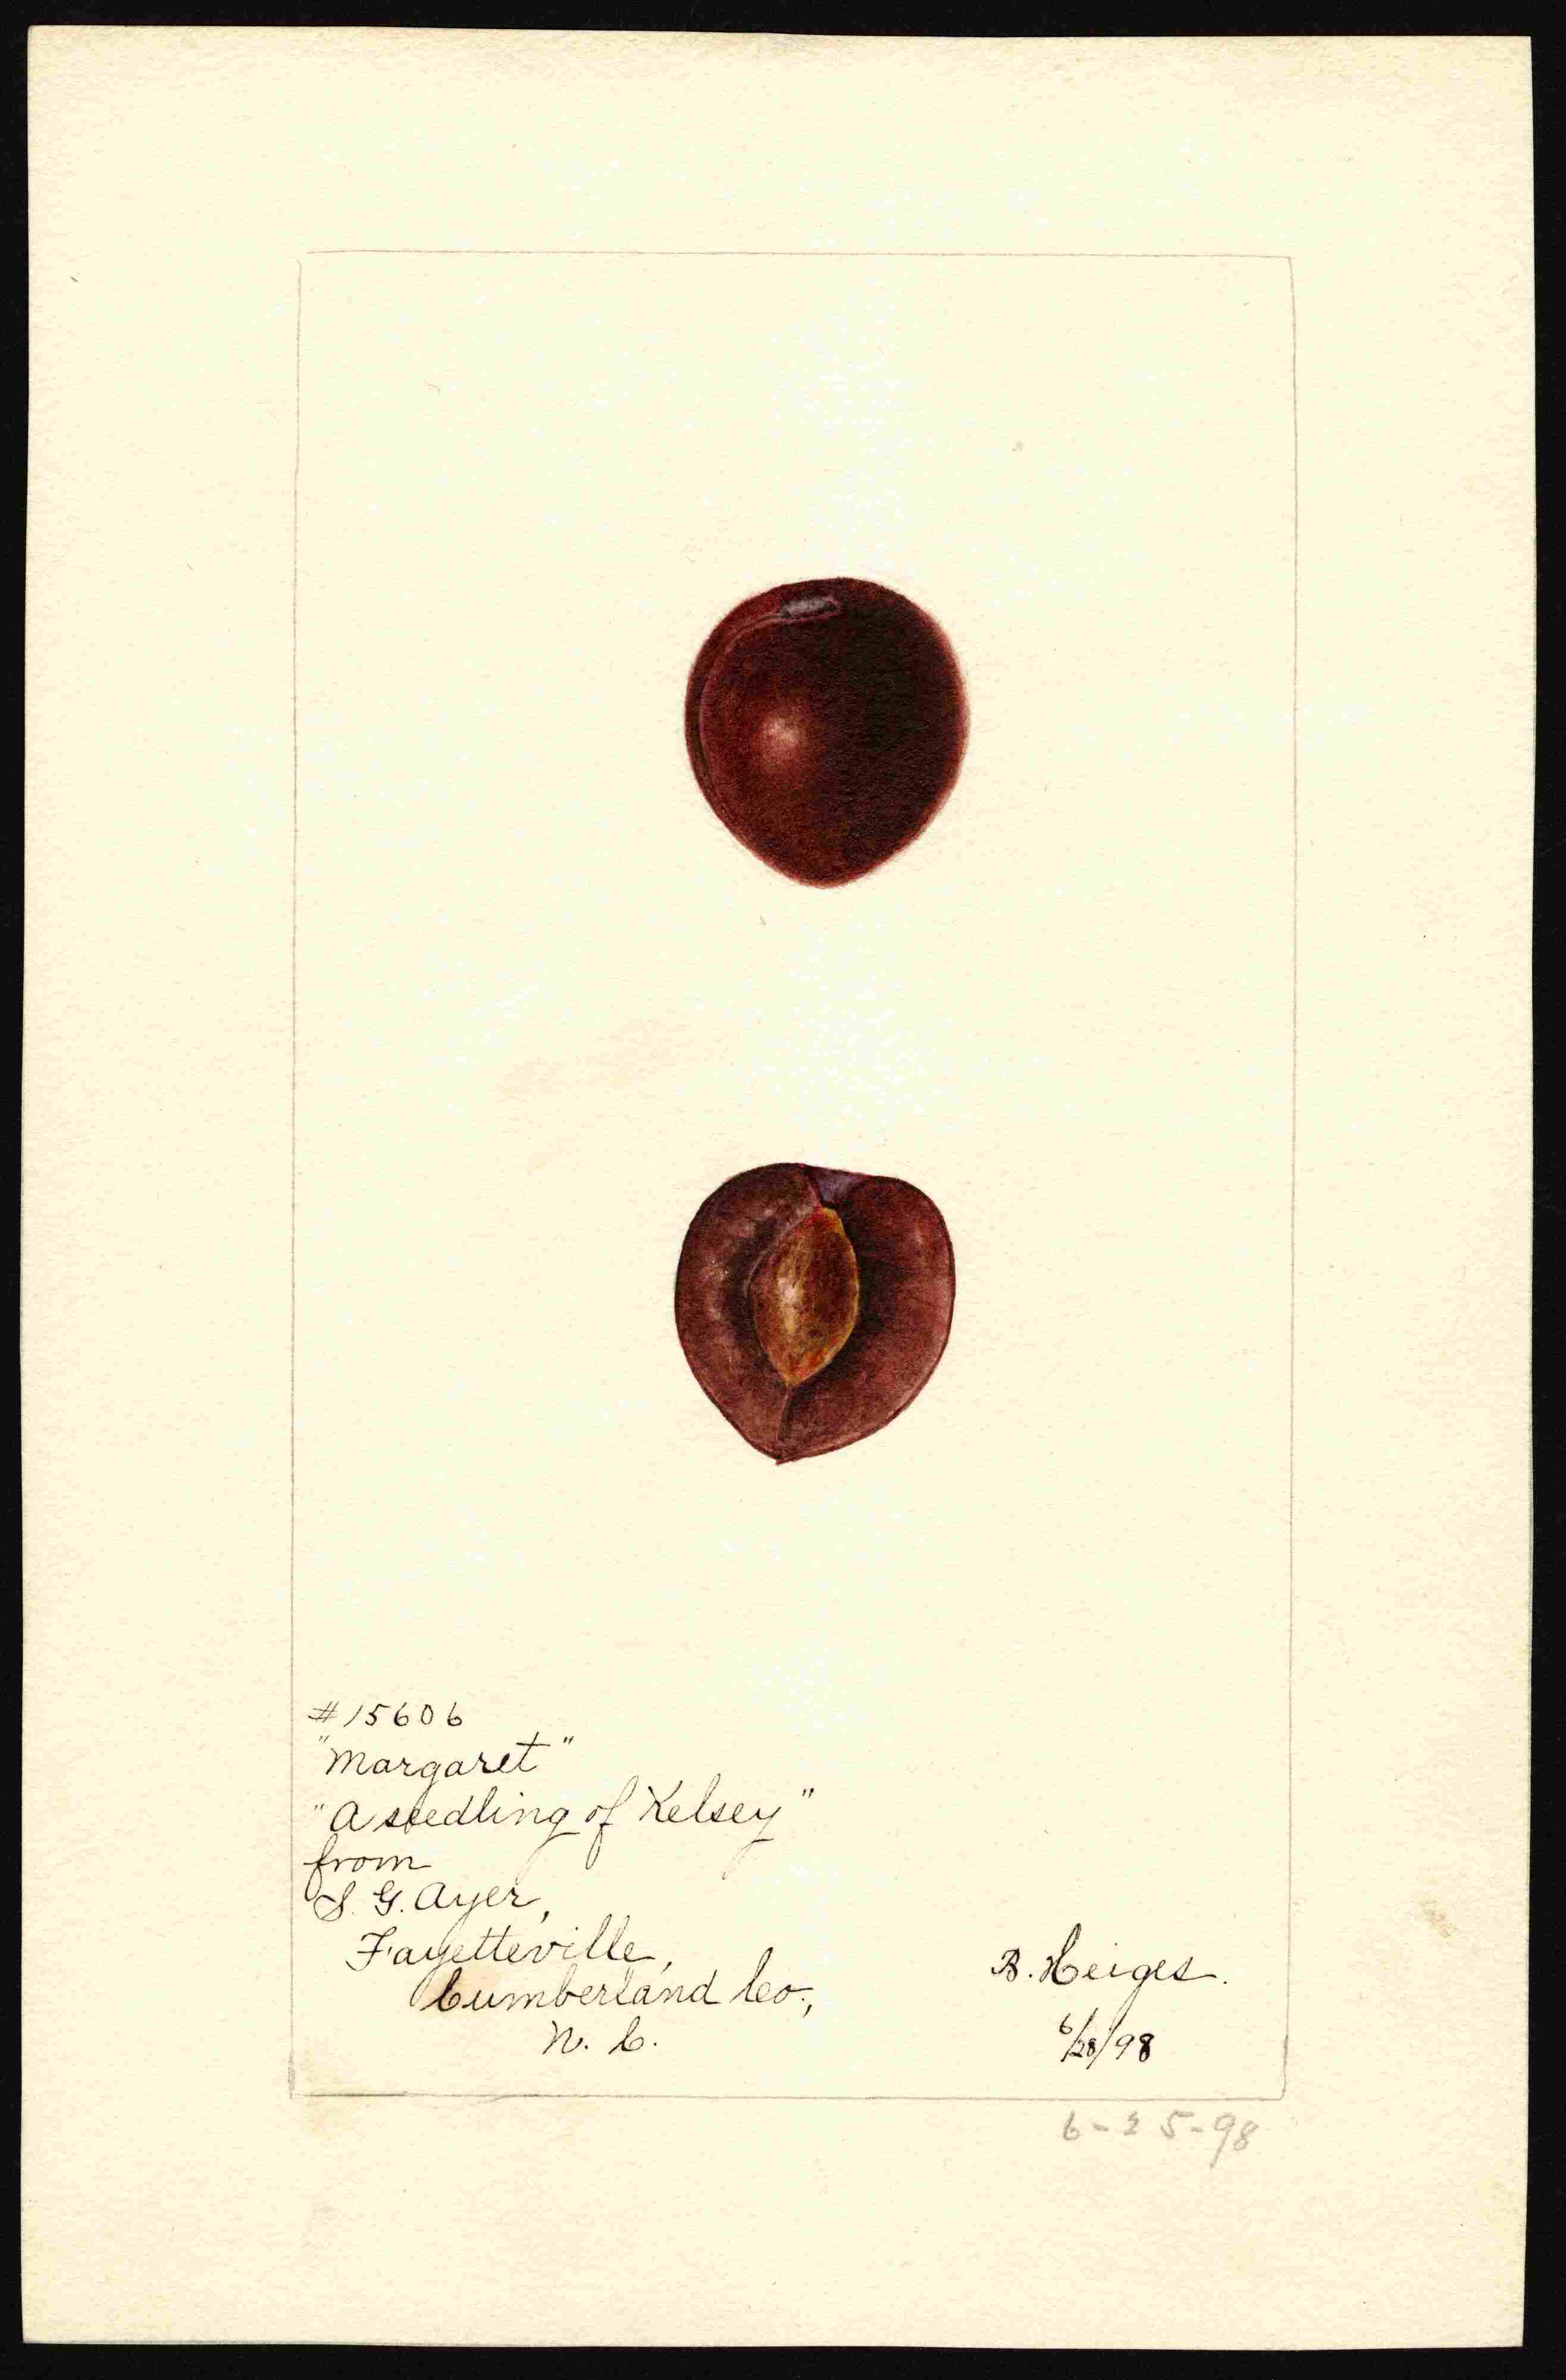 #15606
"Margaret"
"A seedling of Kelsey"
from
S. G. Ayer,
Fayetteville,
Cumberland Co.,
N. C.
B. Heiges.
6/28/98
6-25-98